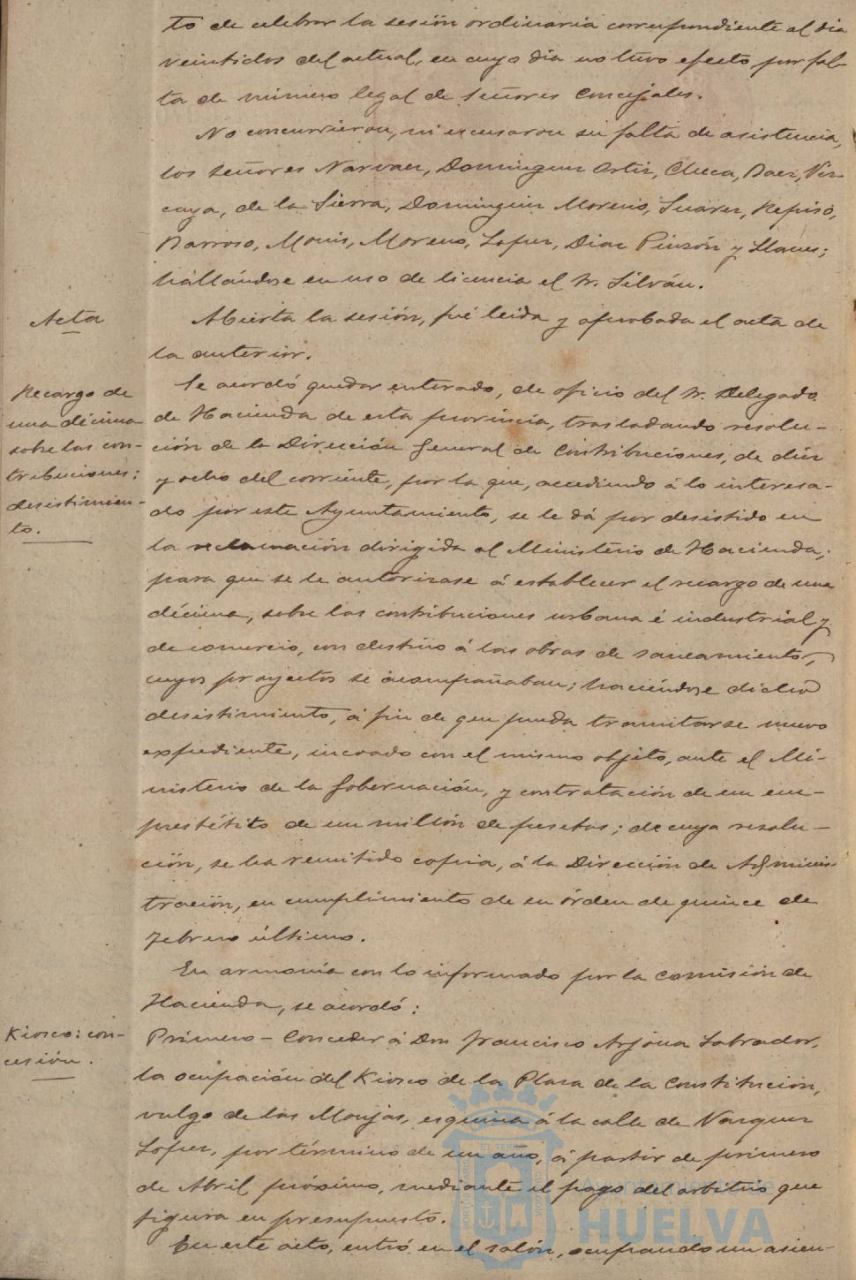 to de celebrar la sesión ordinaria correspondiente al dia
veintidos del actual, en cuyo dia no tuvo efecto, por fal-
ta de número legal de Señores Concejales.
No concurrieron, ni excusaron su falta de asistencia,
los señores Narvaez, Dominguez Ortiz, Checa, Baez, Viz-
caya, de la Sierra, Dominguez Moreno, Suarez, Repiso,
Barroso, Monis, Moreno, Lopez, Diaz Pinzón y Llanes;
hállándose en uso de licencia el Sr. Silván.
Acta
Abierta la sesión, fué leida y aprobada el acta de
la anterior.
Recargo de
una décima
sobre las con-
tribuciones:
desistimien-
to.
Se acordó quedar enterado, de oficio del Sr. Delegado
de Hacienda de esta provincia, trasladando resolu-
ción de la Dirección General de Contribuciones, de diez
y ocho del corriente, por la que, accediendo á lo interesa-
do por este Ayuntamiento, se le dá por desistido en
la reclamación dirigida al Ministerio de Hacienda,
para que se le autorizase á establecer el recargo de una
décima, sobre las contribuciones urbana é industrial y
de comercio, con destino á las obras de saneamiento,
cuyos proyectos se acompañaban; haciéndose dicho
desistimiento, á fin de que pueda tramitarse nuevo
expediente, incoado con el mismo objeto, ante el Mi-
nisterio de la Gobernación, y contratación de un em-
préstito de un millón de pesetas; de cuya resolu-
ción, se ha remitido copia, á la Dirección de Adminis-
tración, en cumplimiento de su órden de quince de
Febrero último.
En armonía con lo informado por la Comisión de
Hacienda, se acordó:
Kiosco: con-
cesión.
Primero - Conceder á Don Francisco Arjona Labrador,
la ocupación del Kiosco de la Plaza de la Constitución,
vulgo de las Monjas, esquina á la calle de Vazquez
Lopez, por término de un año, á partir de primero
de Abril próximo, mediante el pago del arbitrio que
figura en presupuesto.
En este acto, entró en el salón, ocupando un asien-
Ayuntamiento de
HUELVA